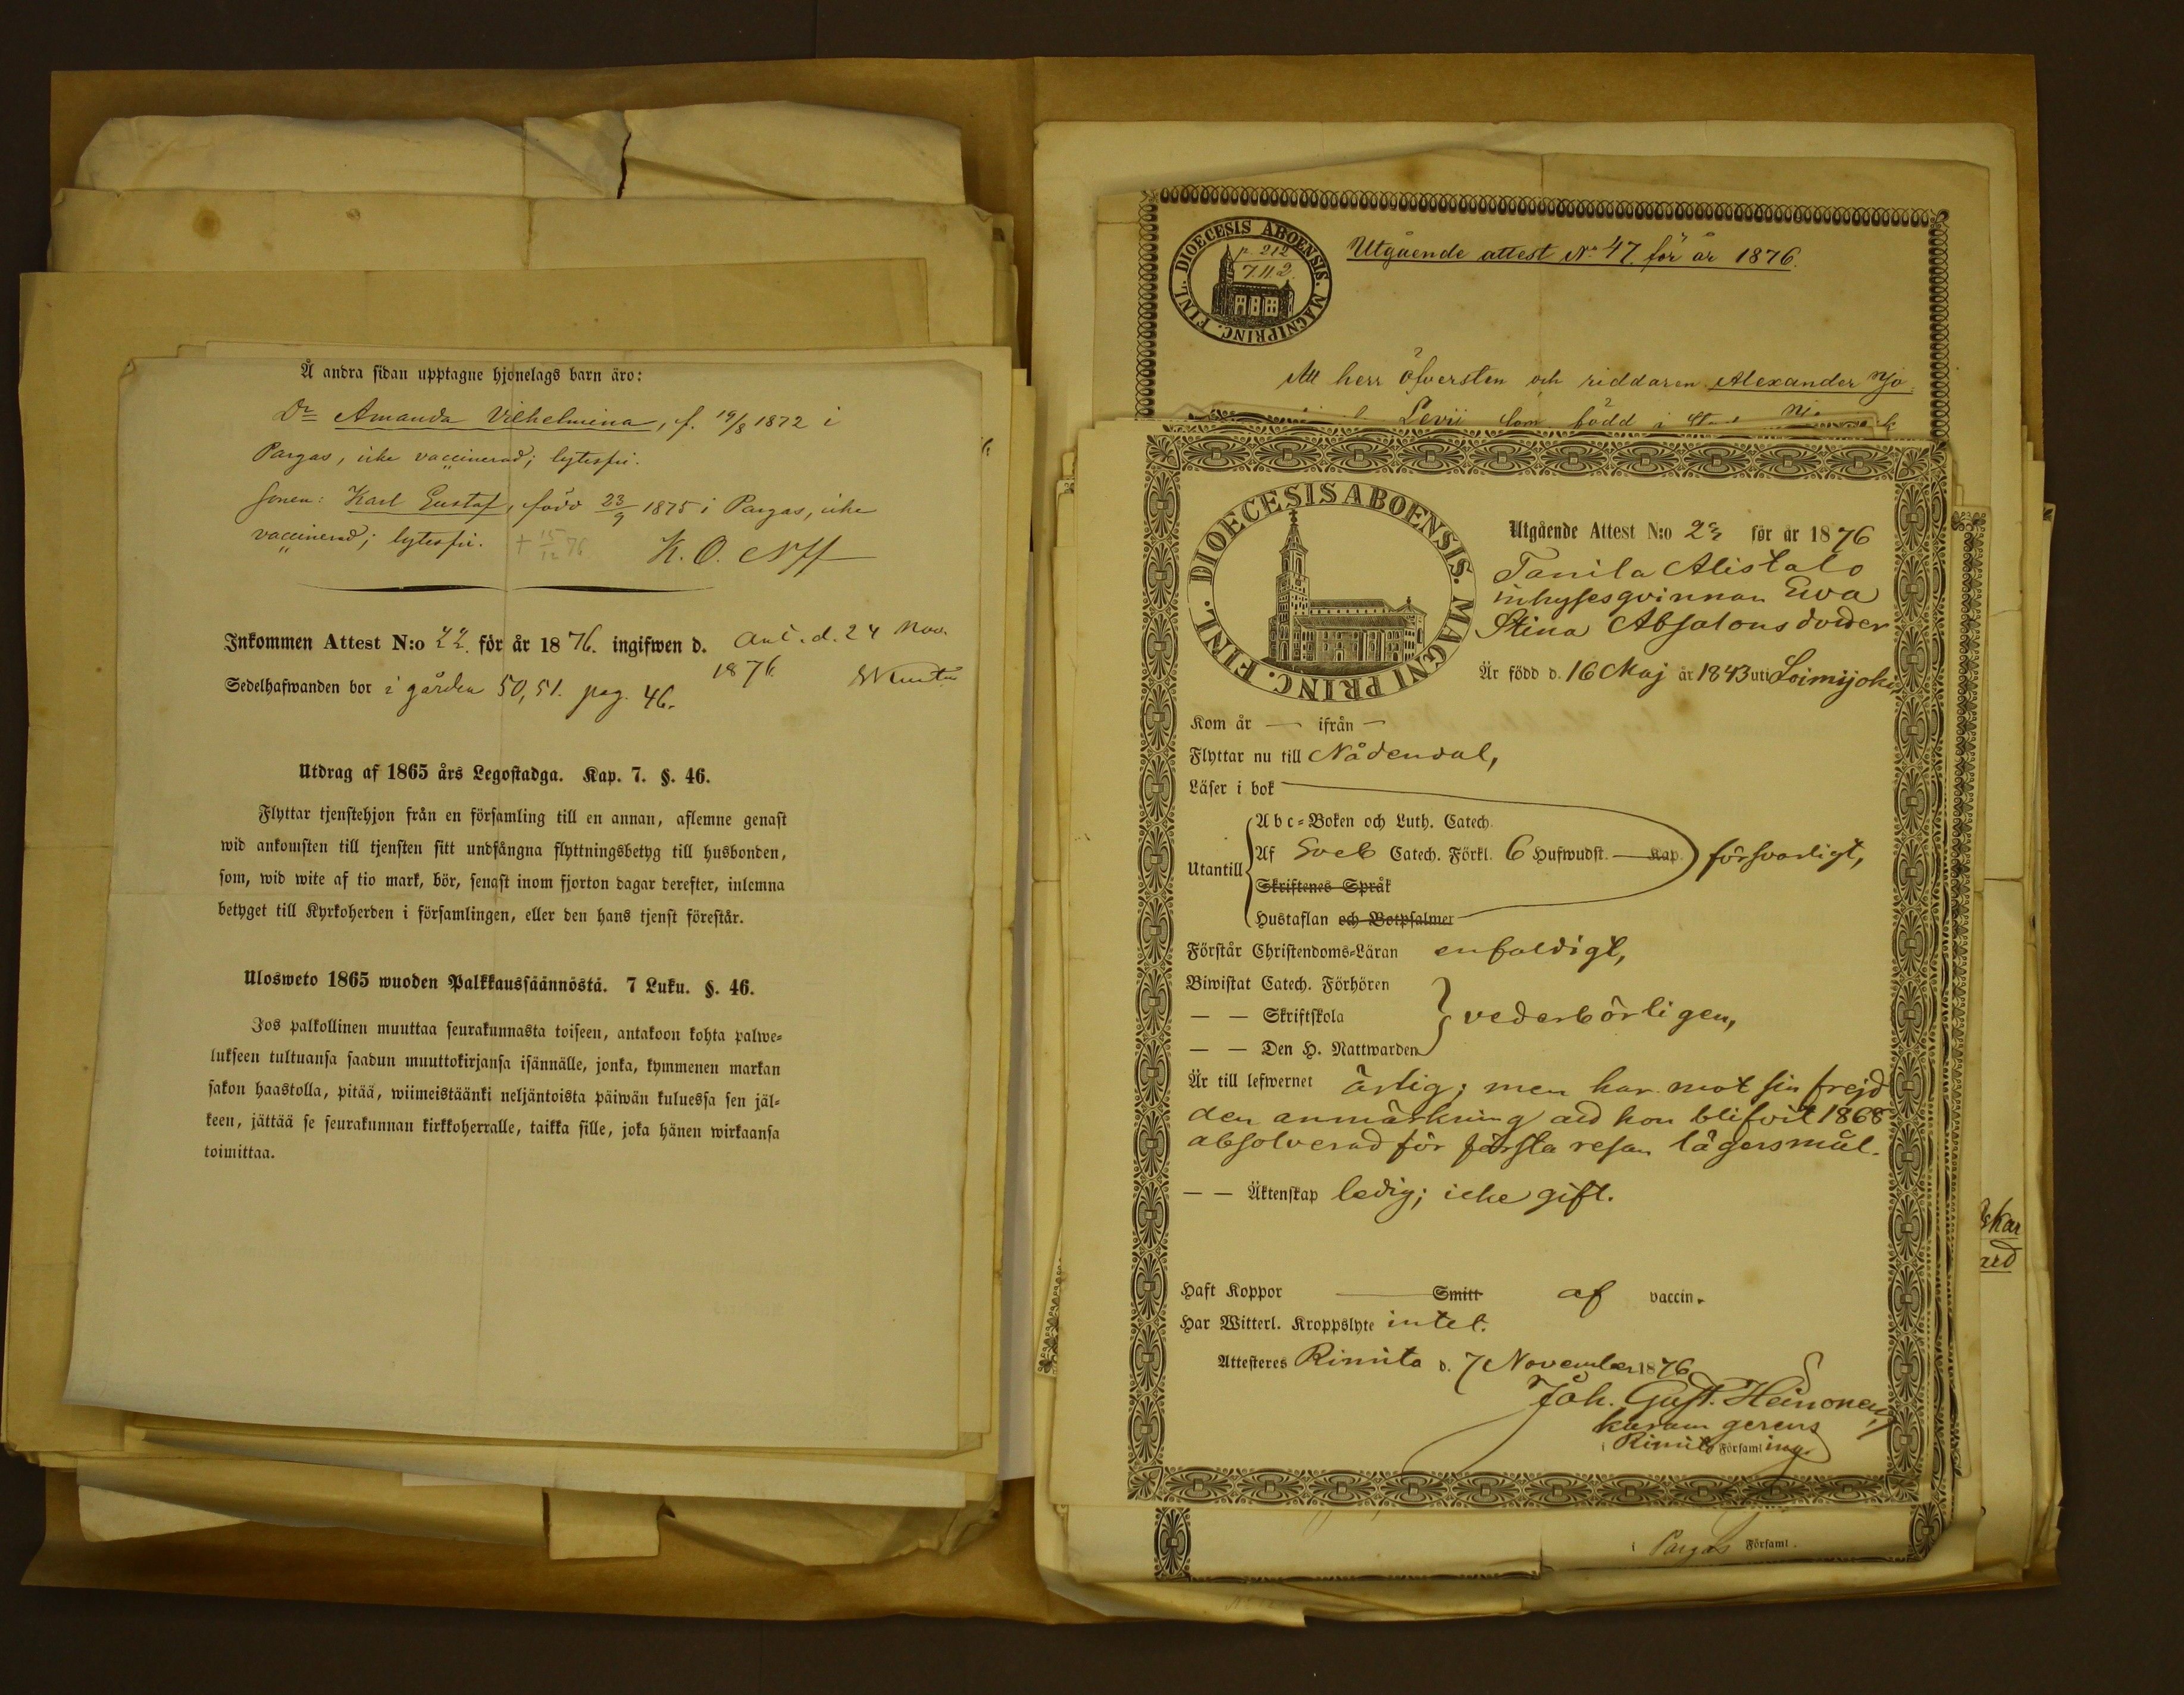 Å andra sidan upptagne hjonelags barn äro:
Dr Amanda Vilhelmina, f. 19/8 1872 i
Pargas, icke vaccinerad; lytesfri.
sonen: Karl Gustaf, född 23/9 1875 i Pargas, icke
vaccinerad; lytesfri. † 15/12 76 K. O.
Inkommen Attest N:o 22. för år 1876. ingifwen d. ant. d. 24 Nov.
1876.
Sedelhafwanden bor i gården 50, 51. pag. 46.
Utdrag af 1865 års Legostadga. Kap. 7. §. 46.
Flyttar tjenstehjon från en församling till en annan, aflemne genast
wid ankomsten till tjensten sitt undfångna flyttningsbetyg till husbonden,
som, wid wite af tio mark, bör, senast inom fjorton dagar derefter, inlemna
betyget till Kyrkoherden i församlingen, eller den hans tjenst förestår.
Ulosweto 1865 wuoden Palkkaussäännöstä. 7 Luku. §. 46.
Jos palkollinen muuttaa seurakunnasta toiseen, antakoon kohta palwe-
lukseen tultuansa saadun muuttokirjansa isännälle, jonka, kymmenen markan
sakon haastolla, pitää, wiimeistäänki neljäntoista päiwän kuluessa sen jäl-
keen, jättää se seurakunnan kirkkoherralle, taikka sille, joka hänen wirkaansa
toimittaa.
FINL. DIOECESIS ABOENSIS. MAGNI PRINC.
p. 212
7.11.2.
Utgående attest No 47. för år 1876.
Att herr öfversten och riddaren Alexander
Levii som född i
FINL. DIOECESIS ABOENSIS. MAGNI PRINC.
Utgående Attest N:o för år 1876
Tanila Alistalo
inhysesqvinnan Eva
Stina Absalonsdotter
Är född d. 16 Maj år 1843 uti Loimijoki,
Kom år — ifrån —
Flyttar nu till Nådendal,
Läser i bok
Abc-Boken och Luth. Catech.
Utantill Af Sveb Catech. Förkl. 6 Hufwudst. — Kap. försvarligt,
Skriftenes Språk
Hustaflan och Botpsalmer
Förstår Christendoms-Läran enfaldigt,
Biwistat Catech. Förhören
— — Skriftskola vederbörligen,
— — Den H. Nattwarden
Är till lefwernet ärlig; men har mot sin frejd
den anmärkning att hon blifvit 1868
absolverad för första resan lägersmål.
— — Äktenskap ledig; icke gift.
Haft Koppor — Smitt af vaccin.
Har Witterl. Kroppslyte intet.
Attesteres Rimito d. 7 November 1876
Joh. Gust. Heinonen
kuram gerens
i Rimito Församling.
i Pargas Församl.